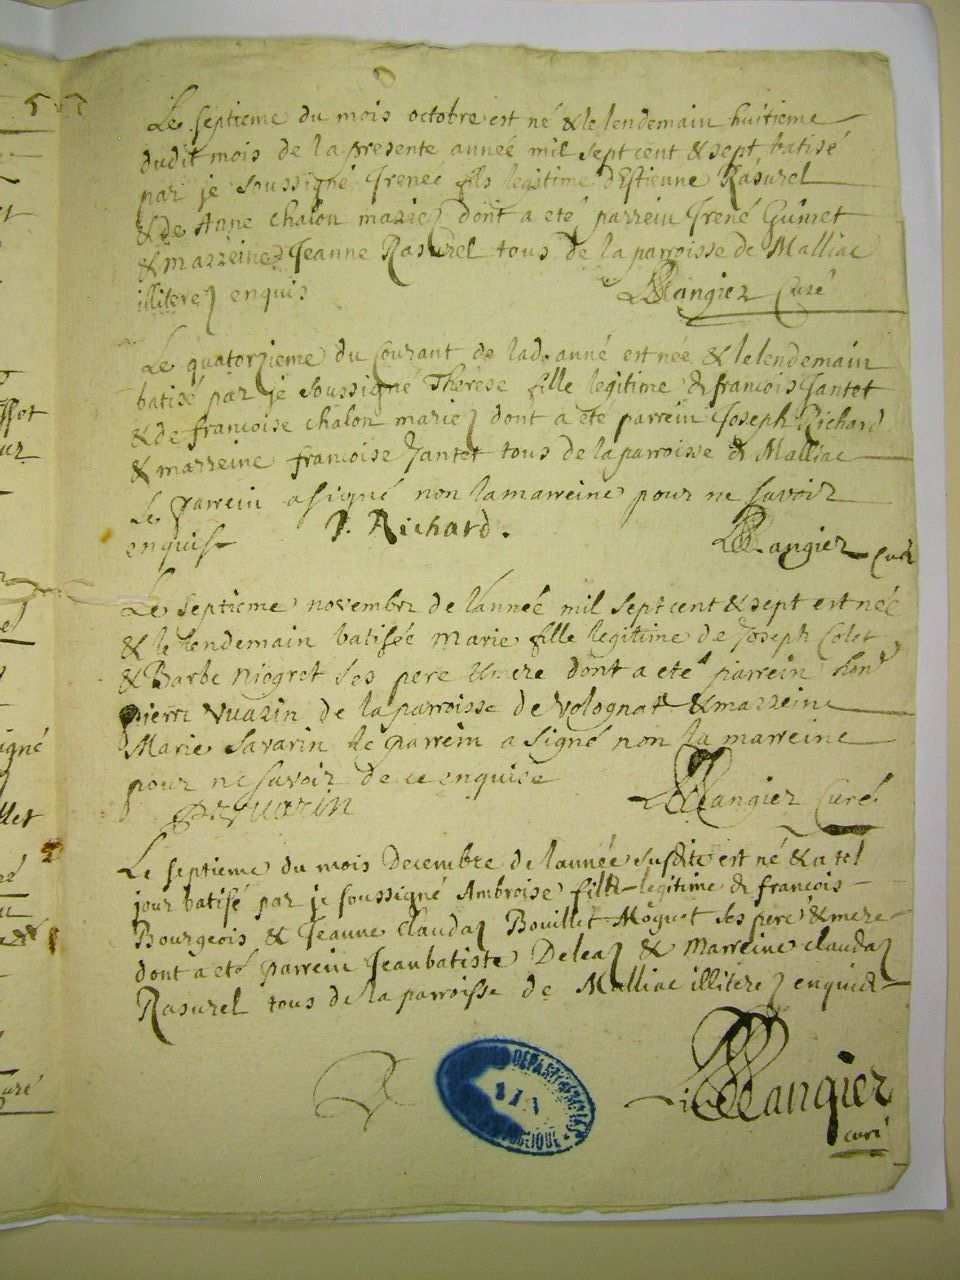 Le septieme du mois octobre est né & le lendemain huitieme
dudit mois de la presente année mil sept cent & sept batisé
par je soussigné Irenée fils legitime d'Estienne Rasurel
& de Anne chalon mariez dont a eté parrein Irené Guinet
& marreine Jeanne Rasurel tous de la parroisse de Malliac
illiterez enquis
Mangier Curé
Le quatorzieme du Courant de lad. anné est née & le lendemain
batisé par je soussigné Therese fille legitime de francois Jantet
& de francoise chalon mariez dont a ete parrein Joseph Richard
& marreine francoise Jantet tous de la parroisse de Malliac
Le parrein a signé non la marreine pour ne savoir
enquise
J. Richard.
Mangier Curé
Le septieme novembre de l'année mil sept cent & sept est née
& le lendemain batisée marie fille legitime de Joseph Colet
& Barbe Niogret ses pere & mere dont a eté parrein hon
pierre Vuarin de la parroisse de Volognat & marreine
Marie Savarin le parrein a signé non la marreine
pour ne savoir de ce enquise
P. Vuarin
Mangier Curé
Le septieme du mois Decembre de l'année susdite est né & a tel
jour batisé par je soussigné Ambroise fille legitime de francois
Bourgeois & Jeanne Claudaz Bouillet Moguet ses pere & mere
dont a eté parrein Jean batiste Deleaz & Marreine claudaz
Rasurel tous de la parroisse de Malliac illiterez enquis
Mangier
curé